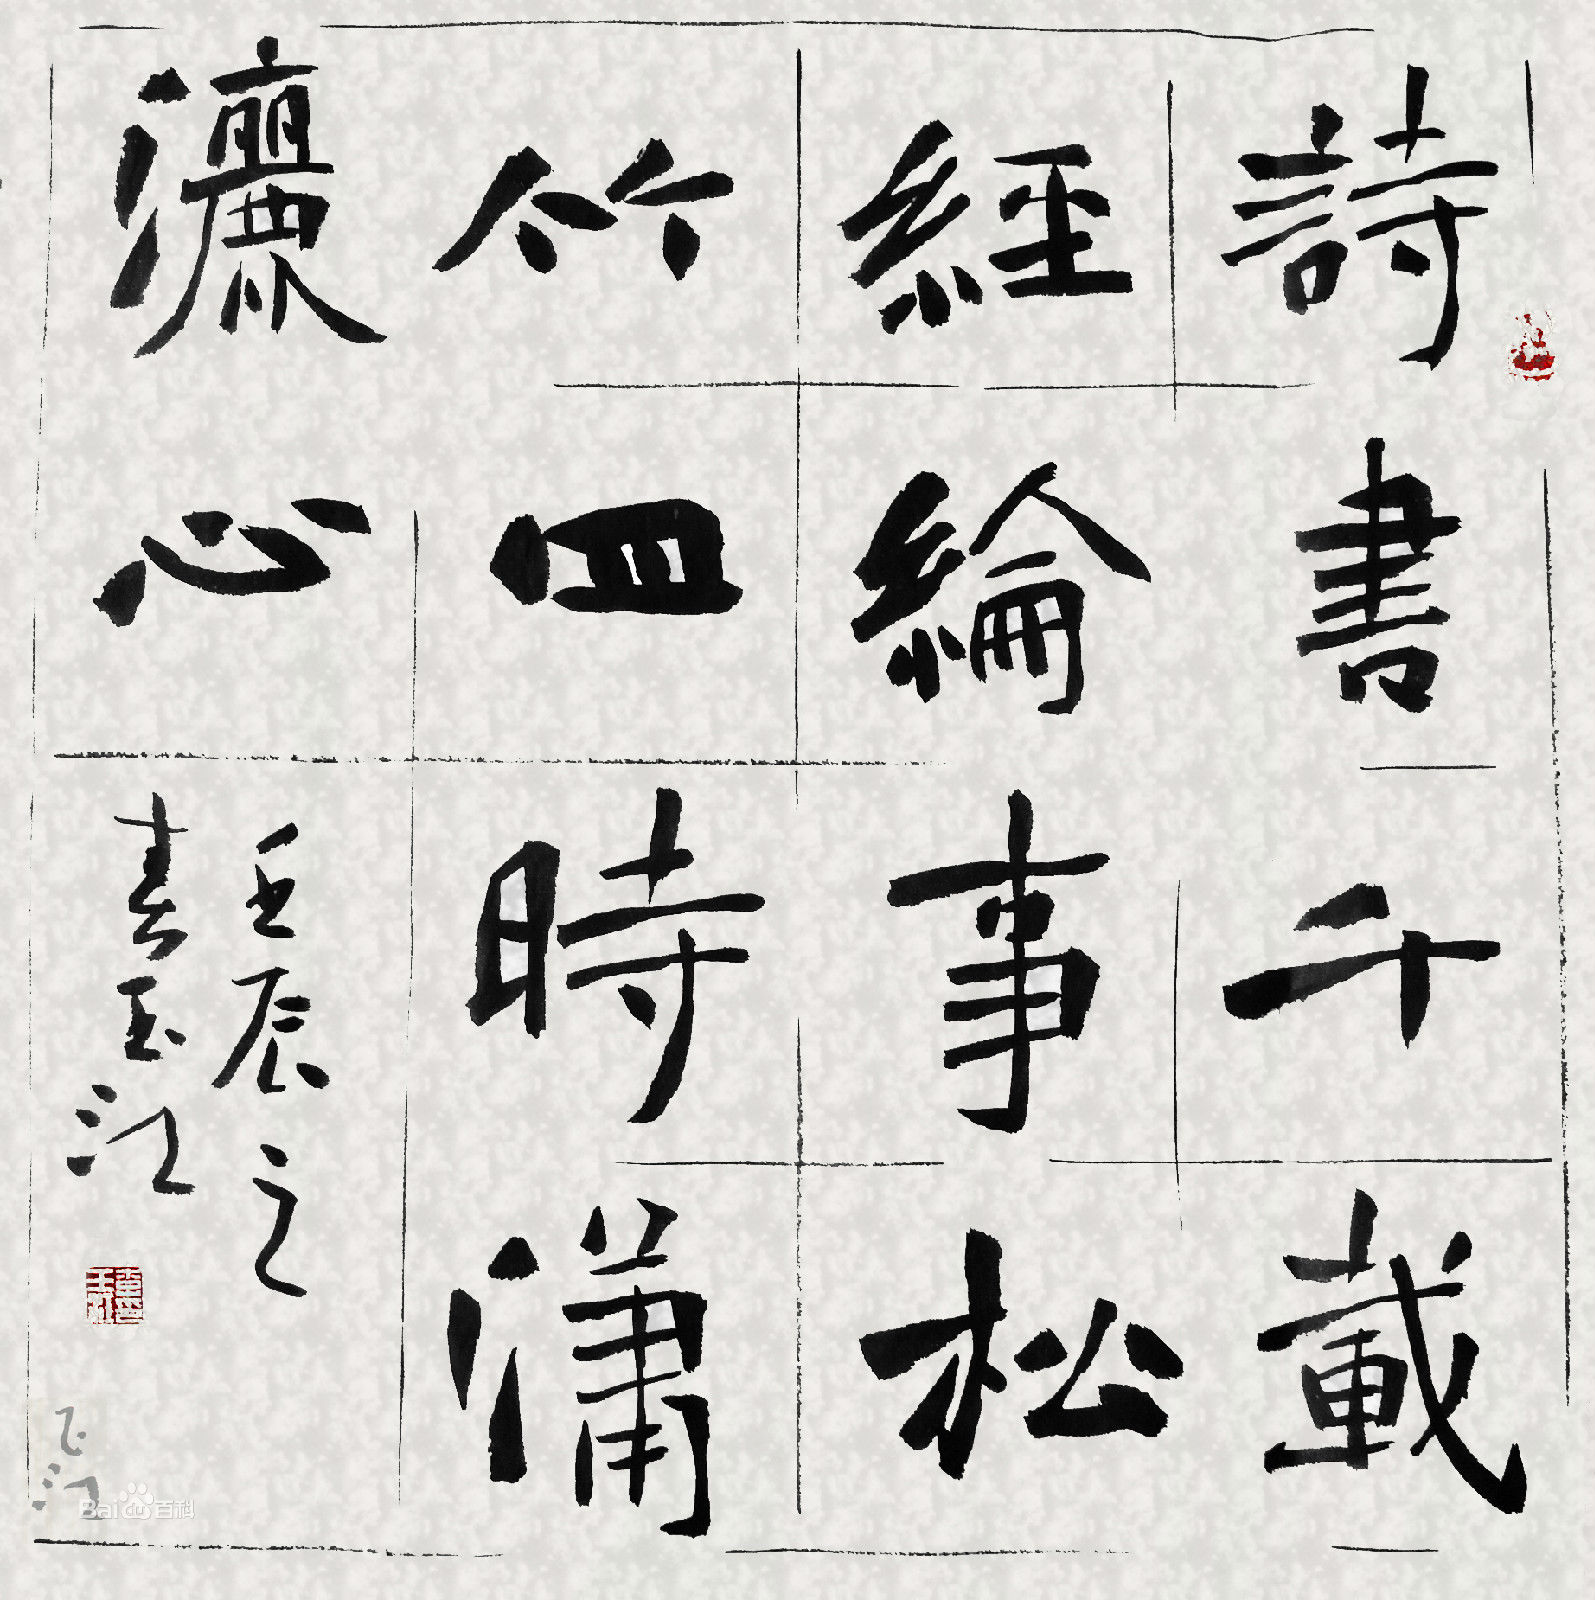 詩書千載
經綸事松
竹四時瀟
灑心
壬辰之
春玉江
玉江
Baidu百科